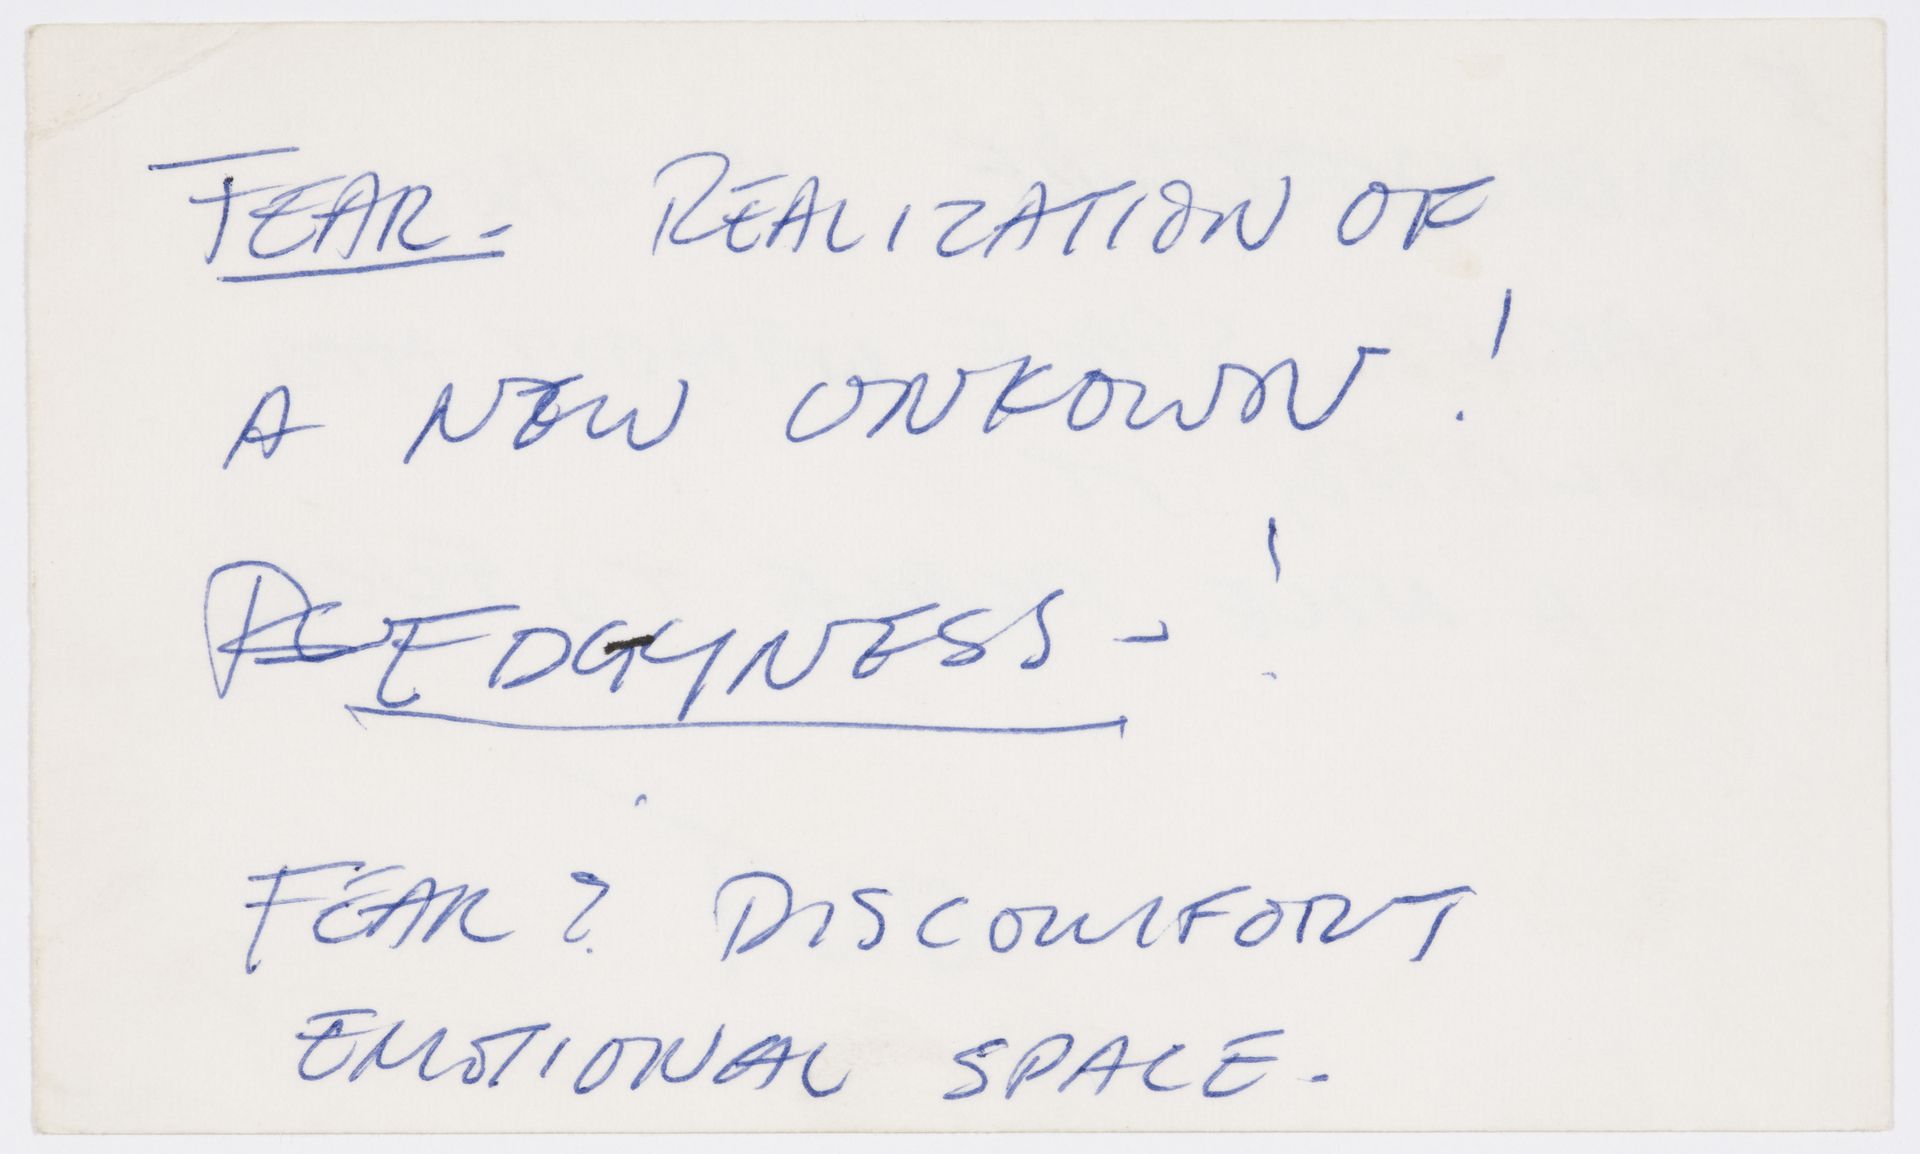 FEAR- REALIZATION OF
A NEW UNKOWN!
EDGYNESS-!
FEAR? DISCOMFORT
EMOTIONAL SPACE-